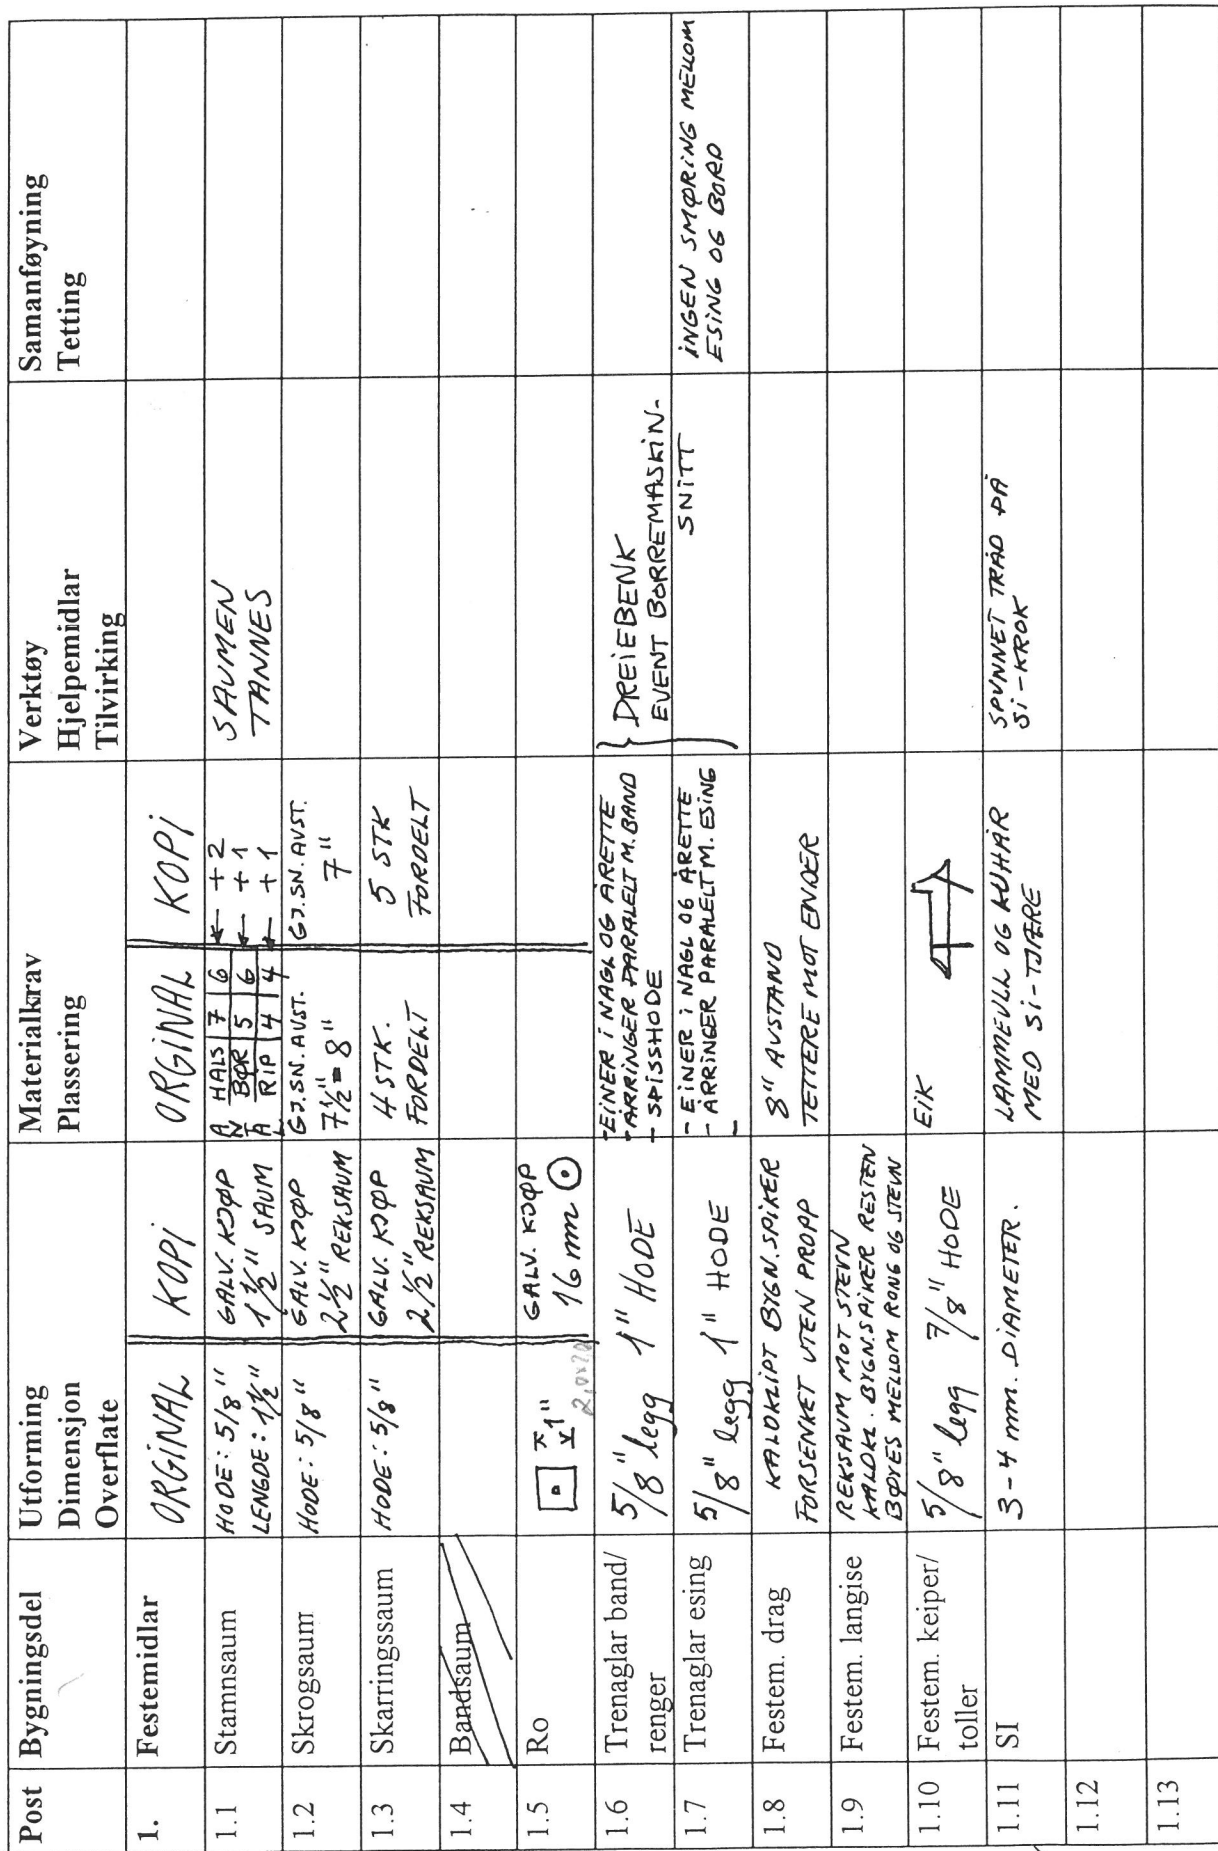 Post Bygningsdel Utforming Dimensjon Overflate Materialkrav Plassering Verktøy Hjelpemidlar Tilvirking Samanføyning Tetting
1. Festemidlar ORGINAL KOPI ORGINAL KOPI
1.1 Stamnsaum
HODE: 5/8"
LENGDE: 1½"
GALV. KJØP
1½" SAUM
ANTAL
HALS 7 6 ← +2
BØR 5 6 ← +1
RIP 4 4 ← +1
SAUMEN
TANNES
1.2 Skrogsaum
HODE: 5/8"
GALV. KJØP
2½" REKSAUM
GJ.SN. AVST.
7½" = 8"
GJ.SN. AVST.
7"
1.3 Skarringssaum
HODE: 5/8"
GALV. KJØP
2½" REKSAUM
4 STK.
FORDELT
5 STK
FORDELT
1.4 Bandsaum
1.5 Ro
1"
2,0x20
GALV. KJØP
16 mm
1.6 Trenaglar band/
renger
5/8" legg 1" HODE
- EINER I NAGL OG ÅRETTE
- ÅRRINGER PARALELT M. BAND
- SPISSHODE
DREIEBENK
EVENT BORREMASKIN-
SNITT
1.7 Trenaglar esing
5/8" legg 1" HODE
- EINER I NAGL OG ÅRETTE
- ÅRRINGER PARALELT M. ESING
-
INGEN SMØRING MELLOM
ESING OG BORD
1.8 Festem. drag
KALDKLIPT BYGN. SPIKER
FORSENKET UTEN PROPP
8" AVSTAND
TETTERE MOT ENDER
1.9 Festem. langise
REKSAUM MOT STEVN
KALDKL. BYGN.SPIKER RESTEN
BØYES MELLOM RONG OG STEVN
1.10 Festem. keiper/
toller
5/8" legg 7/8" HODE
EIK
1.11 SI
3-4 mm. DIAMETER.
LAMMEULL OG KUHÅR
MED SI-TJÆRE
SPUNNET TRÅD PÅ
SI-KROK
1.12
1.13